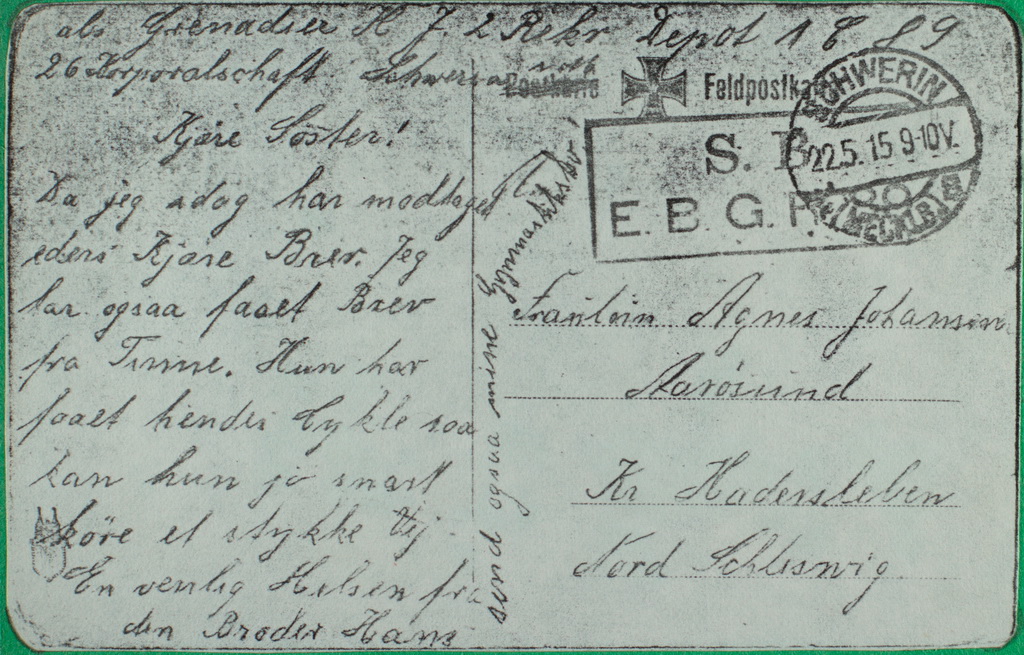 als Grenadier H J. 2 Rekr Depot 1 E 89
26 Korporalschaft Schwerin
Kjäre Söster!
Da jeg idag har modtaget
eders Kjäre Brev. Jeg
har ogsaa faaet Brev
fra Tinne. Hun har
faaet hendes Cykle saa
kan hun jo snart
köre et stykke Vej
En venlig Helsen fra
din Broder Hans
send ogsaa mine Gymnastiksko
Postkarte
Feldpostka
SCHWERIN
22.5.15 9-10V.
(MECKLB)
S. B
E. B. G.
Fräulein Agnes Johansen
Aarösund
Kr Hadersleben
Nord Schleswig